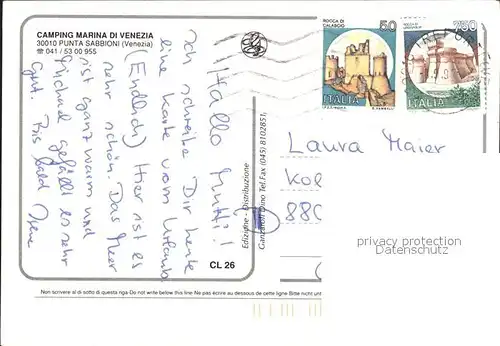 CAMPING MARINA DI VENEZIA
30010 PUNTA SABBIONI (Venezia)
☎ 041 / 53 00 955
Hallo Mutti!
Ich schreibe Dir heute
eine Karte vom Urlaub
(Endlich) Hier ist es
sehr schön. Das Meer
ist ganz warm und
Michael gefällt es sehr
gut. Bis bald
Edizione - Distribuzione
Dino Tel.Fax (045) 8102851,
CL 26
ROCCA DI
CALASCIO
50
ITALIA
750
ITALIA
Laura Maier
Kol
880
privacy protection
Datenschutz
Non scrivere al di sotto di questa riga Do not write below this line Ne pas écrire au dessous de cette ligne Bitte nicht unt